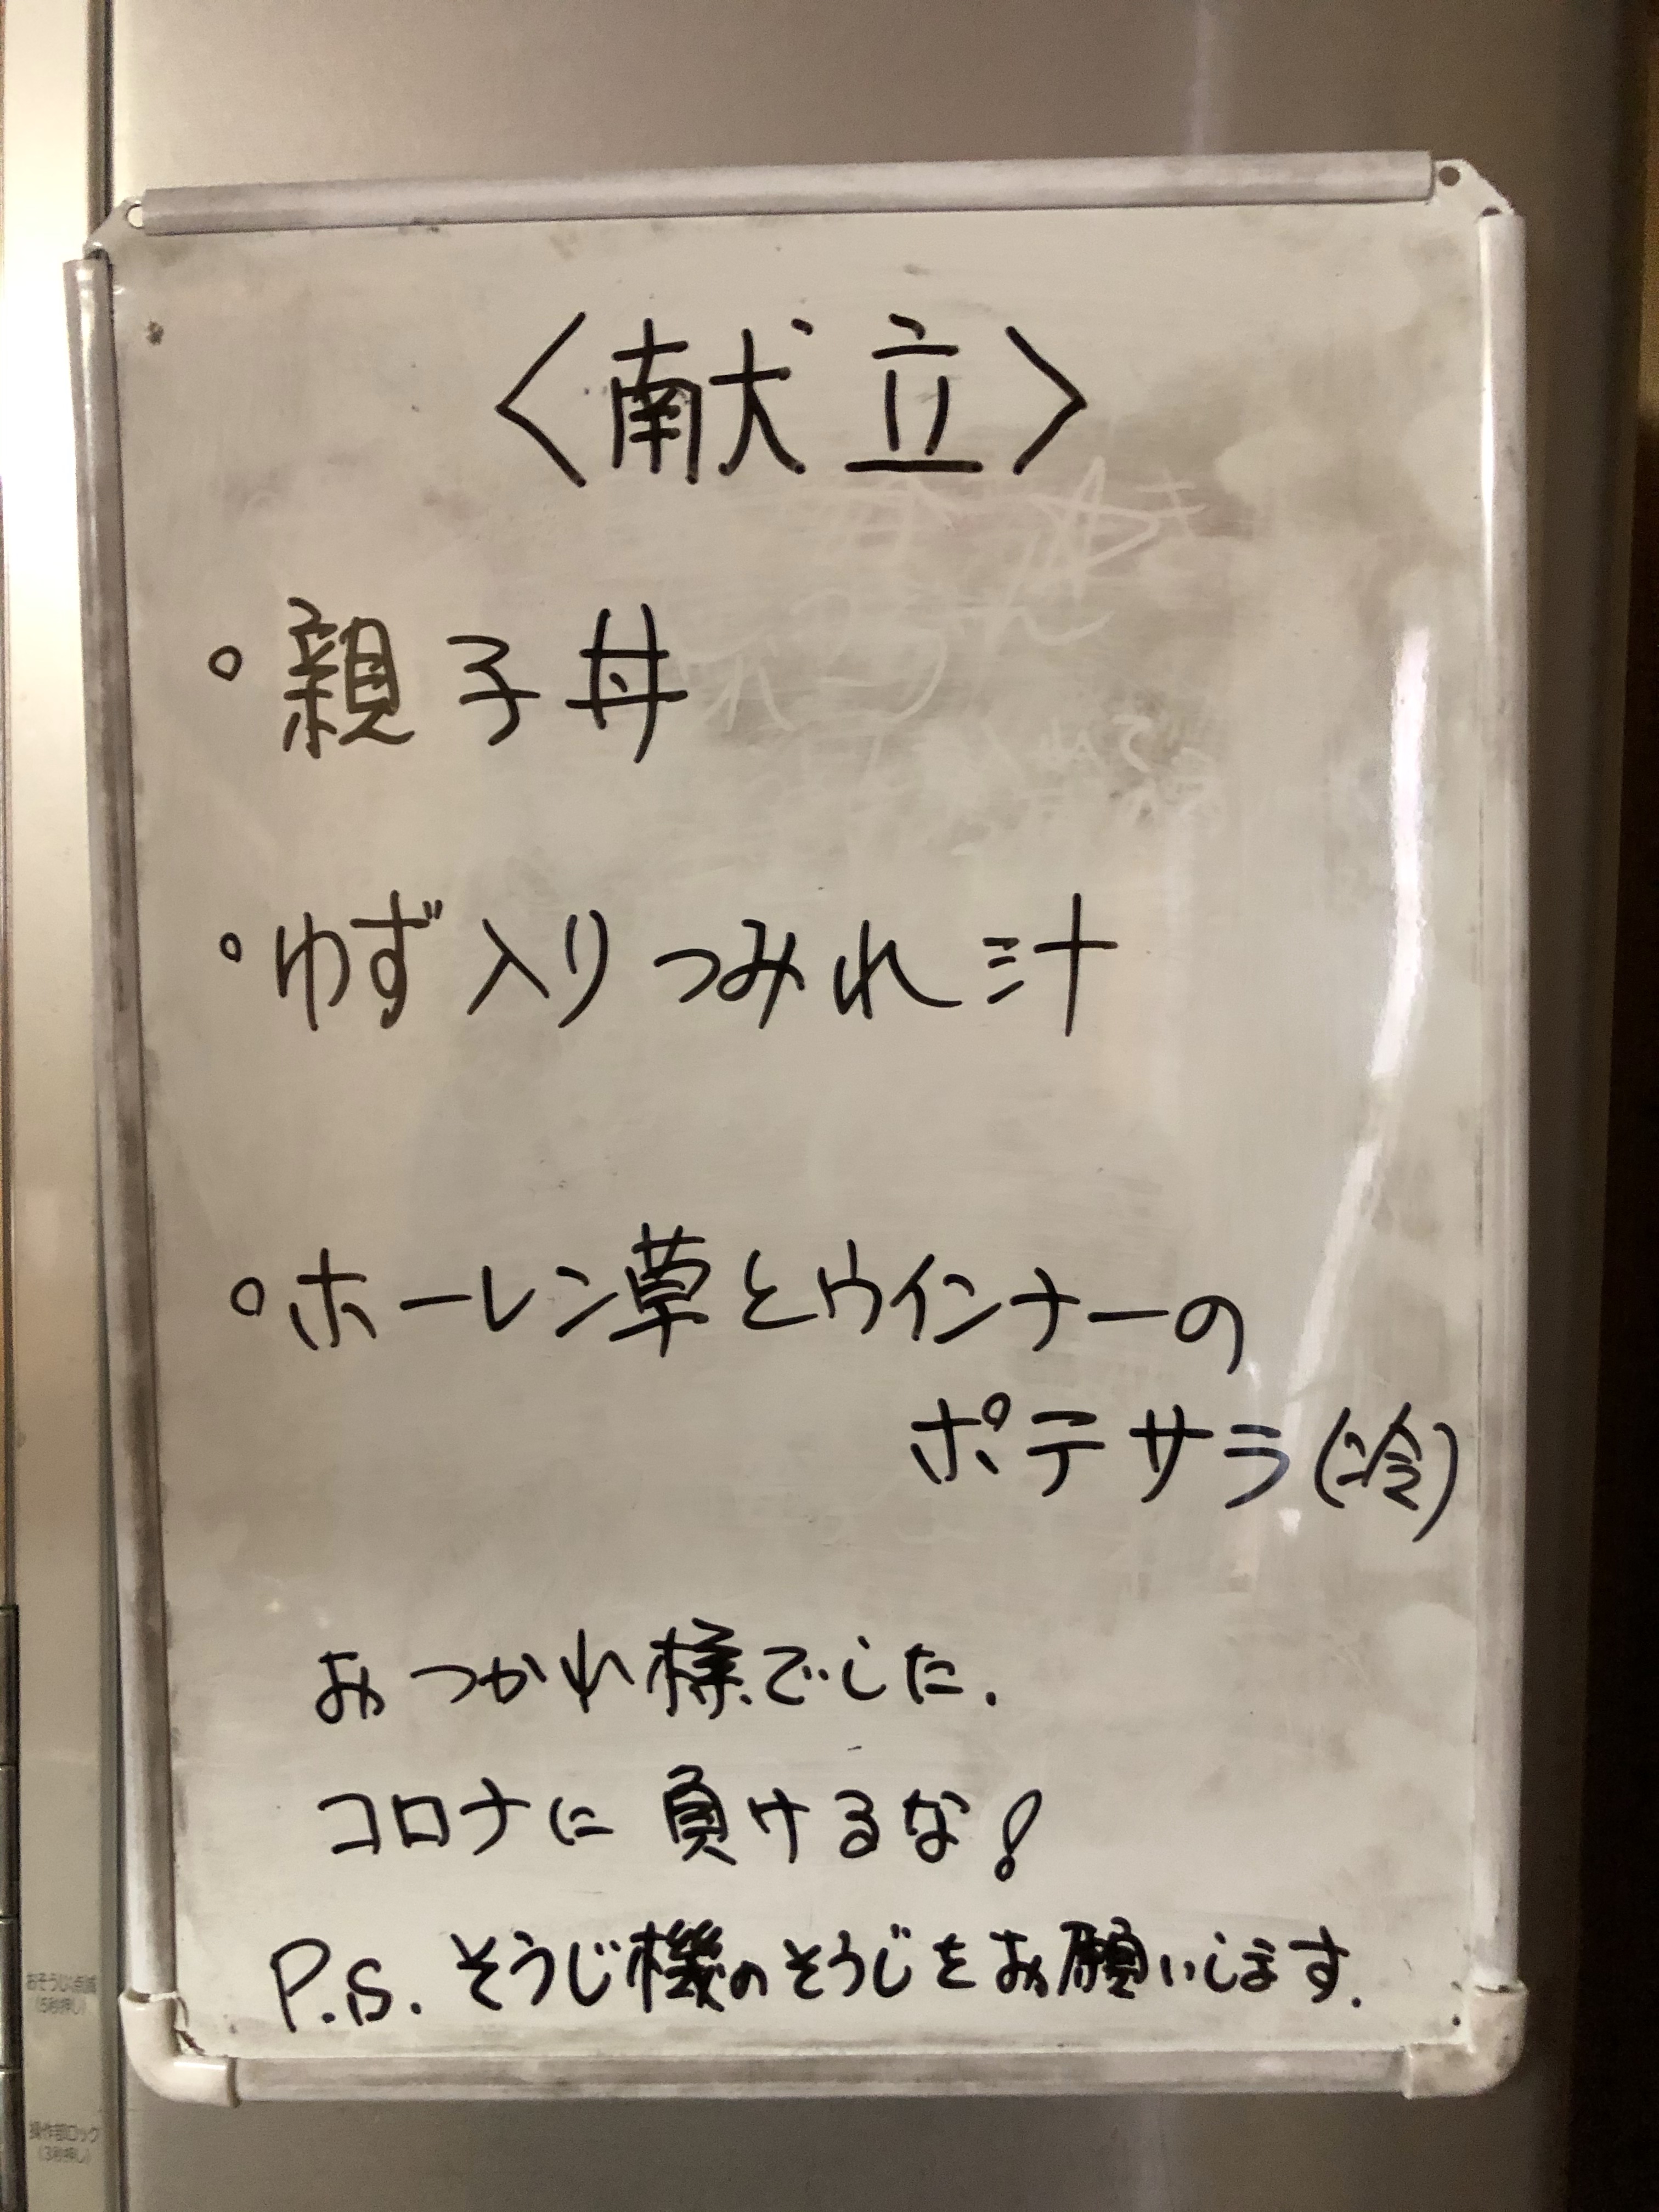 〈献立〉
・親子丼
・ゆず入りつみれ汁
・ホーレン草とウインナーの
ポテサラ(冷)
おつかれ様でした.
コロナに負けるな!
P.S. そうじ機のそうじをお願いします.
おそうじ点滅
(5秒押し)
操作部ロック
(3秒押し)